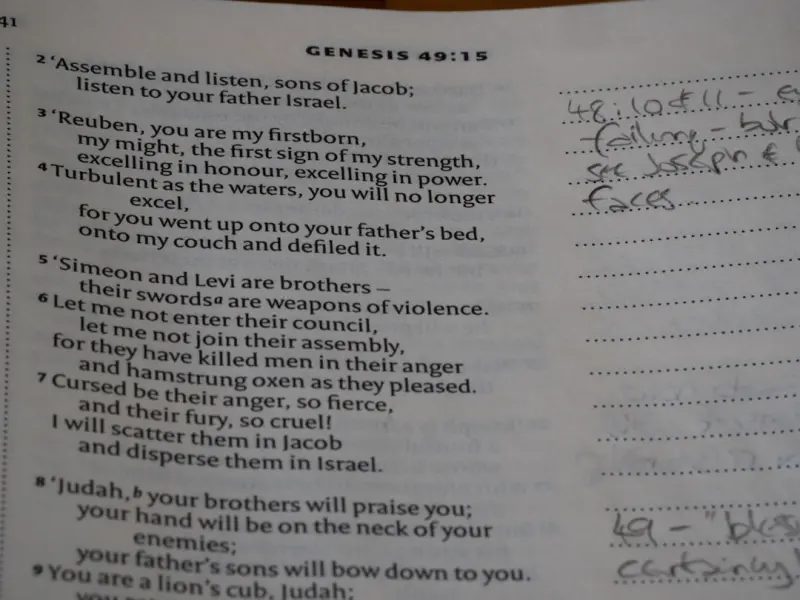 41
GENESIS 49:15
2 ‘Assemble and listen, sons of Jacob;
listen to your father Israel.
3 ‘Reuben, you are my firstborn,
my might, the first sign of my strength,
excelling in honour, excelling in power.
4 Turbulent as the waters, you will no longer
excel,
for you went up onto your father’s bed,
onto my couch and defiled it.
5 ‘Simeon and Levi are brothers –
their swords a are weapons of violence.
6 Let me not enter their council,
let me not join their assembly,
for they have killed men in their anger
and hamstrung oxen as they pleased.
7 Cursed be their anger, so fierce,
and their fury, so cruel!
I will scatter them in Jacob
and disperse them in Israel.
8 ‘Judah, b your brothers will praise you;
your hand will be on the neck of your
enemies;
your father’s sons will bow down to you.
9 You are a lion’s cub, Judah;
you
48:10 & 11 –
failing –
see Joseph &
faces
49 –